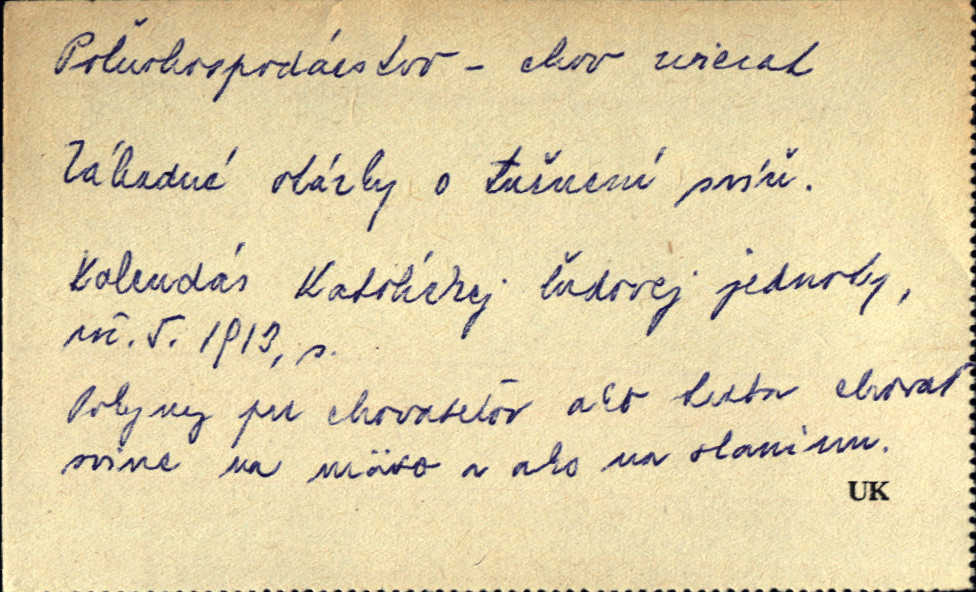 Poľnohospodárstvo – chov zvierat
Základné otázky o tučnení svíň.
Kalendár Katolíckej ľudovej jednoty,
roč. 5. 1913, s.
Pokyny pre chovateľov ako treba chovať
svine na mäso a ako na slaninu.
UK